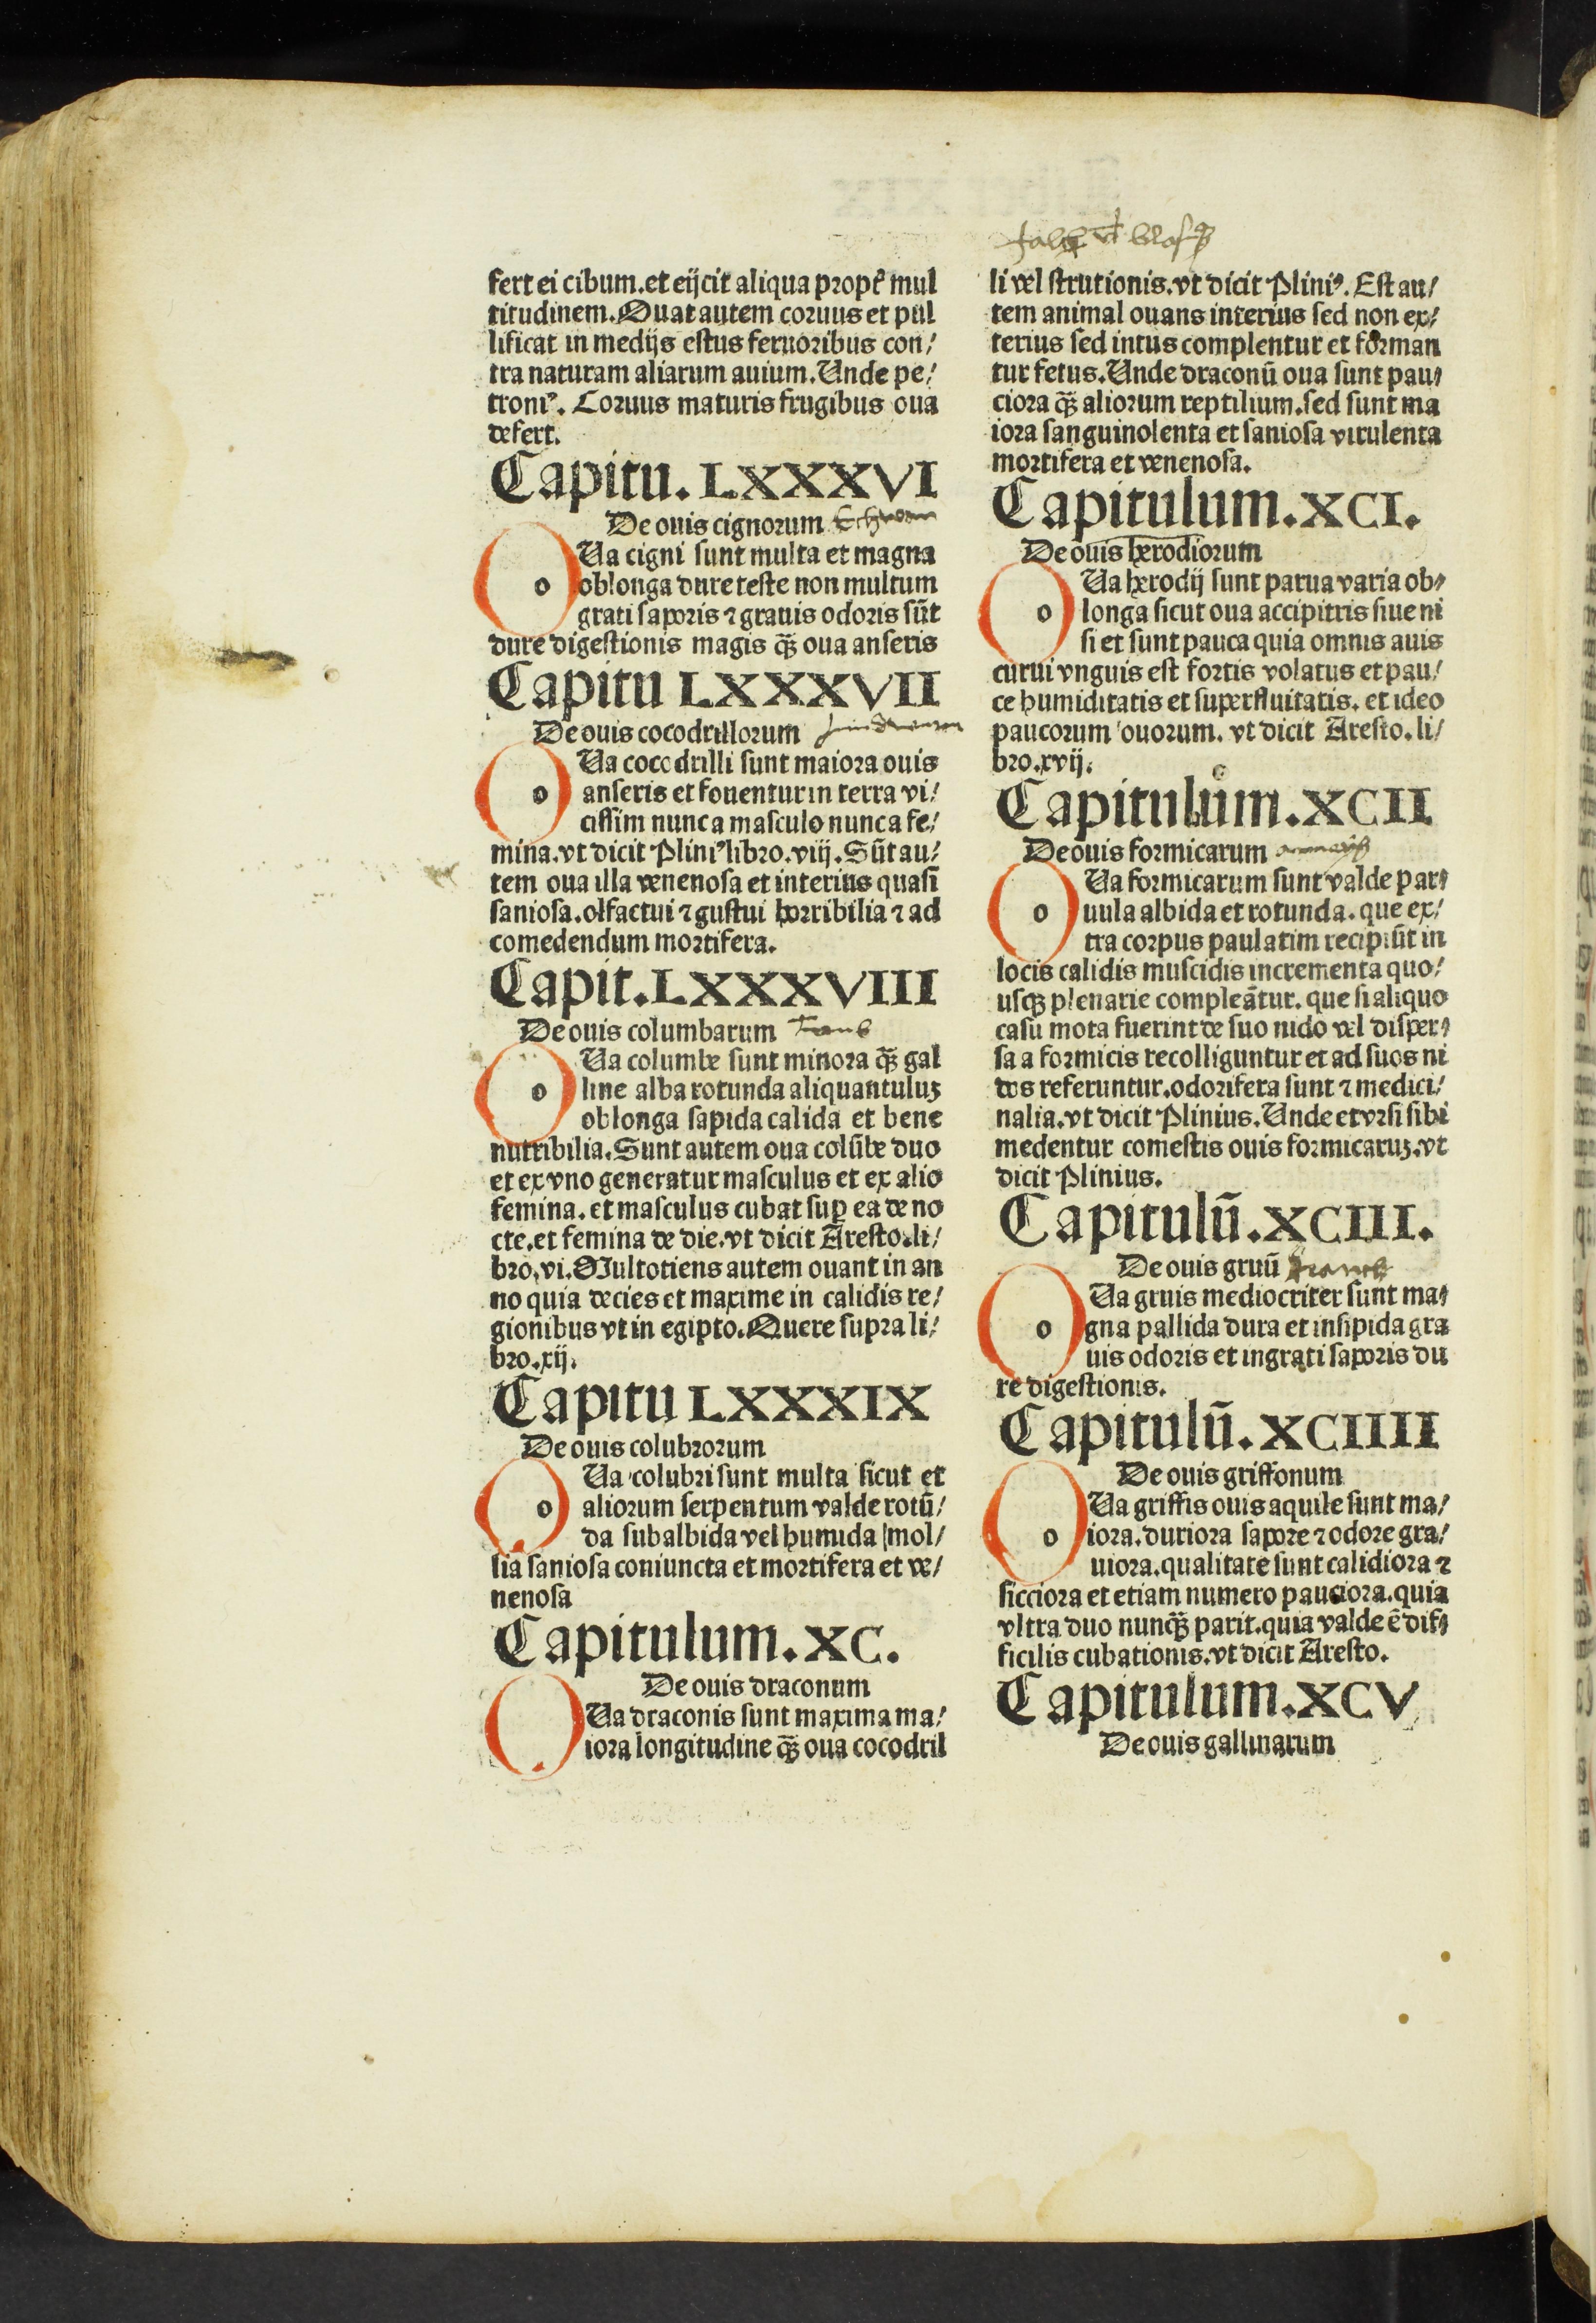 fert ei cibum. et eijcit aliqua propt̉ mul
titudinem. Ouat autem coruus et pul
lificat in medijs estus feruoribus con/
tra naturam aliarum auium. Unde pe/
troniꝰ. Coruus maturis frugibus oua
defert.
Capitu. LXXXVI
De ouis cignorum Schwan
O Ua cigni sunt multa et magna
oblonga dure teste non multum
grati saporis ⁊ grauis odoris sūt
dure digestionis magis q̄ꝫ oua anseris
Capitu LXXXVII
De ouis cocodrillorum
O Ua cocodrilli sunt maiora ouis
anseris et fouentur in terra vi/
cissim nunc a masculo nunc a fe/
mina. vt dicit Pliniꝰ libro. viij. Sūt au/
tem oua illa venenosa et interius quasi
saniosa. olfactui ⁊ gustui horribilia ⁊ ad
comedendum mortifera.
Capit. LXXXVIII
De ouis columbarum Taub
O Ua columbe sunt minora q̄ꝫ gal
line alba rotunda aliquantuluꝫ
oblonga sapida calida et bene
nutribilia. Sunt autem oua colūbe duo
et ex vno generatur masculus et ex alio
femina. et masculus cubat suꝑ ea de no
cte. et femina de die. vt dicit Aresto. li/
bro. vi. Multotiens autem ouant in an
no quia decies et maxime in calidis re/
gionibus vt in egipto. Quere supra li/
bro. xij.
Capitu LXXXIX
De ouis colubrorum
O Ua colubri sunt multa sicut et
aliorum serpentum valde rotū/
da subalbida vel humida mol/
lia saniosa coniuncta et mortifera et ve/
nenosa
Capitulum. XC.
De ouis draconum
O Ua draconis sunt maxima ma/
iora longitudine q̄ꝫ oua cocodril
li vel strutionis. vt dicit Pliniꝰ. Est au/
tem animal ouans interius sed non ex/
terius sed intus complentur et forman
tur fetus. Unde draconū oua sunt pau/
ciora q̄ꝫ aliorum reptilium. sed sunt ma
iora sanguinolenta et saniosa virulenta
mortifera et venenosa.
Capitulum. XCI.
De ouis herodiorum
O Ua herodij sunt parua varia ob/
longa sicut oua accipitris siue ni
si et sunt pauca quia omnis auis
curui vnguis est fortis volatus et pau/
ce humiditatis et superfluitatis. et ideo
paucorum ouorum. vt dicit Aresto. li/
bro. xvij.
Capitulum. XCII
De ouis formicarum
O Ua formicarum sunt valde par/
uula albida et rotunda. que ex/
tra corpus paulatim recipiūt in
locis calidis muscidis incrementa quo/
usqꝫ plenarie compleātur. que si aliquo
casu mota fuerint de suo nido vel disper/
sa a formicis recolliguntur et ad suos ni
dos referuntur. odorifera sunt ⁊ medici/
nalia. vt dicit Plinius. Unde et vrsi sibi
medentur comestis ouis formicaruꝫ. vt
dicit Plinius.
Capitulū. XCIII.
De ouis gruū kranch
O Ua gruis mediocriter sunt ma/
gna pallida dura et insipida gra
uis odoris et ingrati saporis du
re digestionis.
Capitulū. XCIIII
De ouis griffonum
O Ua griffis ouis aquile sunt ma/
iora. duriora sapore ⁊ odore gra/
uiora. qualitate sunt calidiora ⁊
sicciora et etiam numero pauciora. quia
vltra duo nunq̄ꝫ parit. quia valde ē dif/
ficilis cubationis. vt dicit Aresto.
Capitulum. XCV
De ouis gallinarum